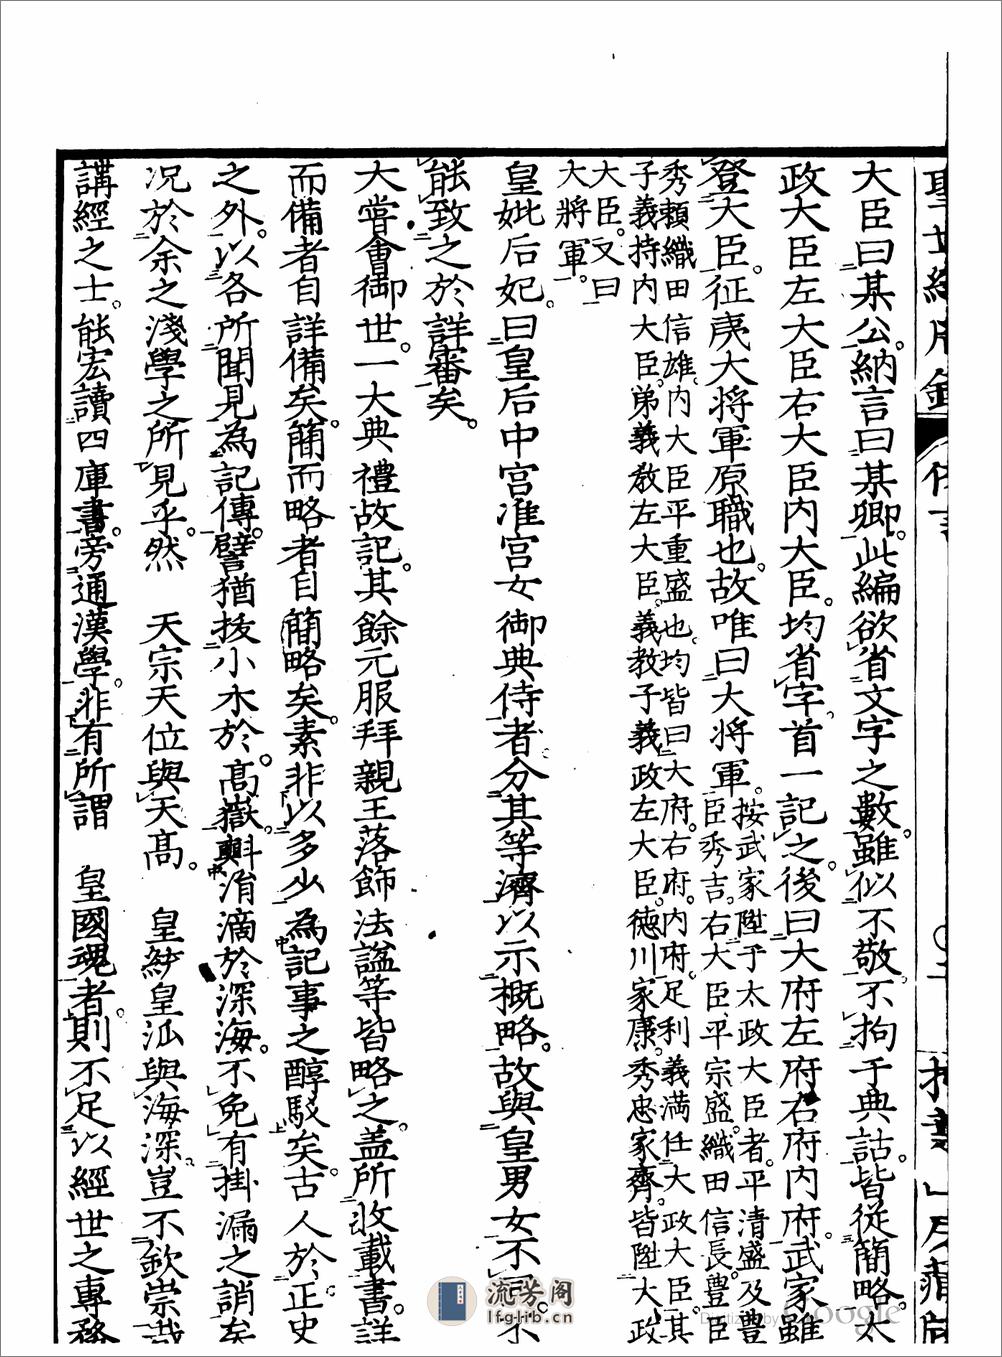 大臣曰某公。納言曰某卿。此編欲省文字之數。雖似不敬。不拘于典詁。皆従簡略。太
政大臣左大臣右大臣内大臣。均省字。首一記之。後曰大府左府右府内府。武家雖
登大臣。征夷大将軍原職也。故唯曰大将軍。
按武家陞于太政大臣者。平清盛及豊
臣秀吉。右大臣平宗盛。織田信長。豊臣
秀頼織田信雄。内大臣平重盛也。均皆曰大府。右府。内府。足利義満任大政大臣。其
子義持内大臣。弟義教左大臣。義教子義政左大臣。徳川家康。秀忠家齊。皆陞大政
大臣。又曰
大将軍。
皇妣后妃。曰皇后中宮准宮女御典侍者。分其等濟以示概略。故與皇男女不
能致之於詳審矣。
大嘗會御世一大典禮故記。其餘元服拜親王落飾法諡等皆略之。盖所收載書。詳
而備者自詳備矣。簡而略者自簡略矣。素非以多少為記事之醇駁矣。古人於正史
之外。以各所聞見為記傳。譬猶抜小木於高嶽。㪺涓滴於深海。不免有掛漏之誚矣
况於余之淺學之所見乎。然 天宗天位與天高。 皇緒皇派與海深。豈不欽崇哉
講經之士。能宏讀四庫書。旁通漢學。非有所謂 皇國魂者。則不足以經世之專務
流芳阁
lfglib.cn
Digitized by Google